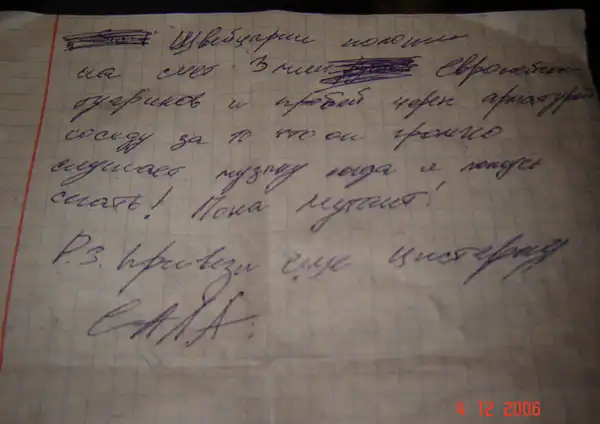 Швейцарии положи
на счет 3 мил Европейских
тугриков и пробей череп арматурой
соседу за то что он громко
слушает музыку когда я ложусь
спать! Пока мутант!
P.S. Привези еще цистерну
САЛА.
4 12 2006